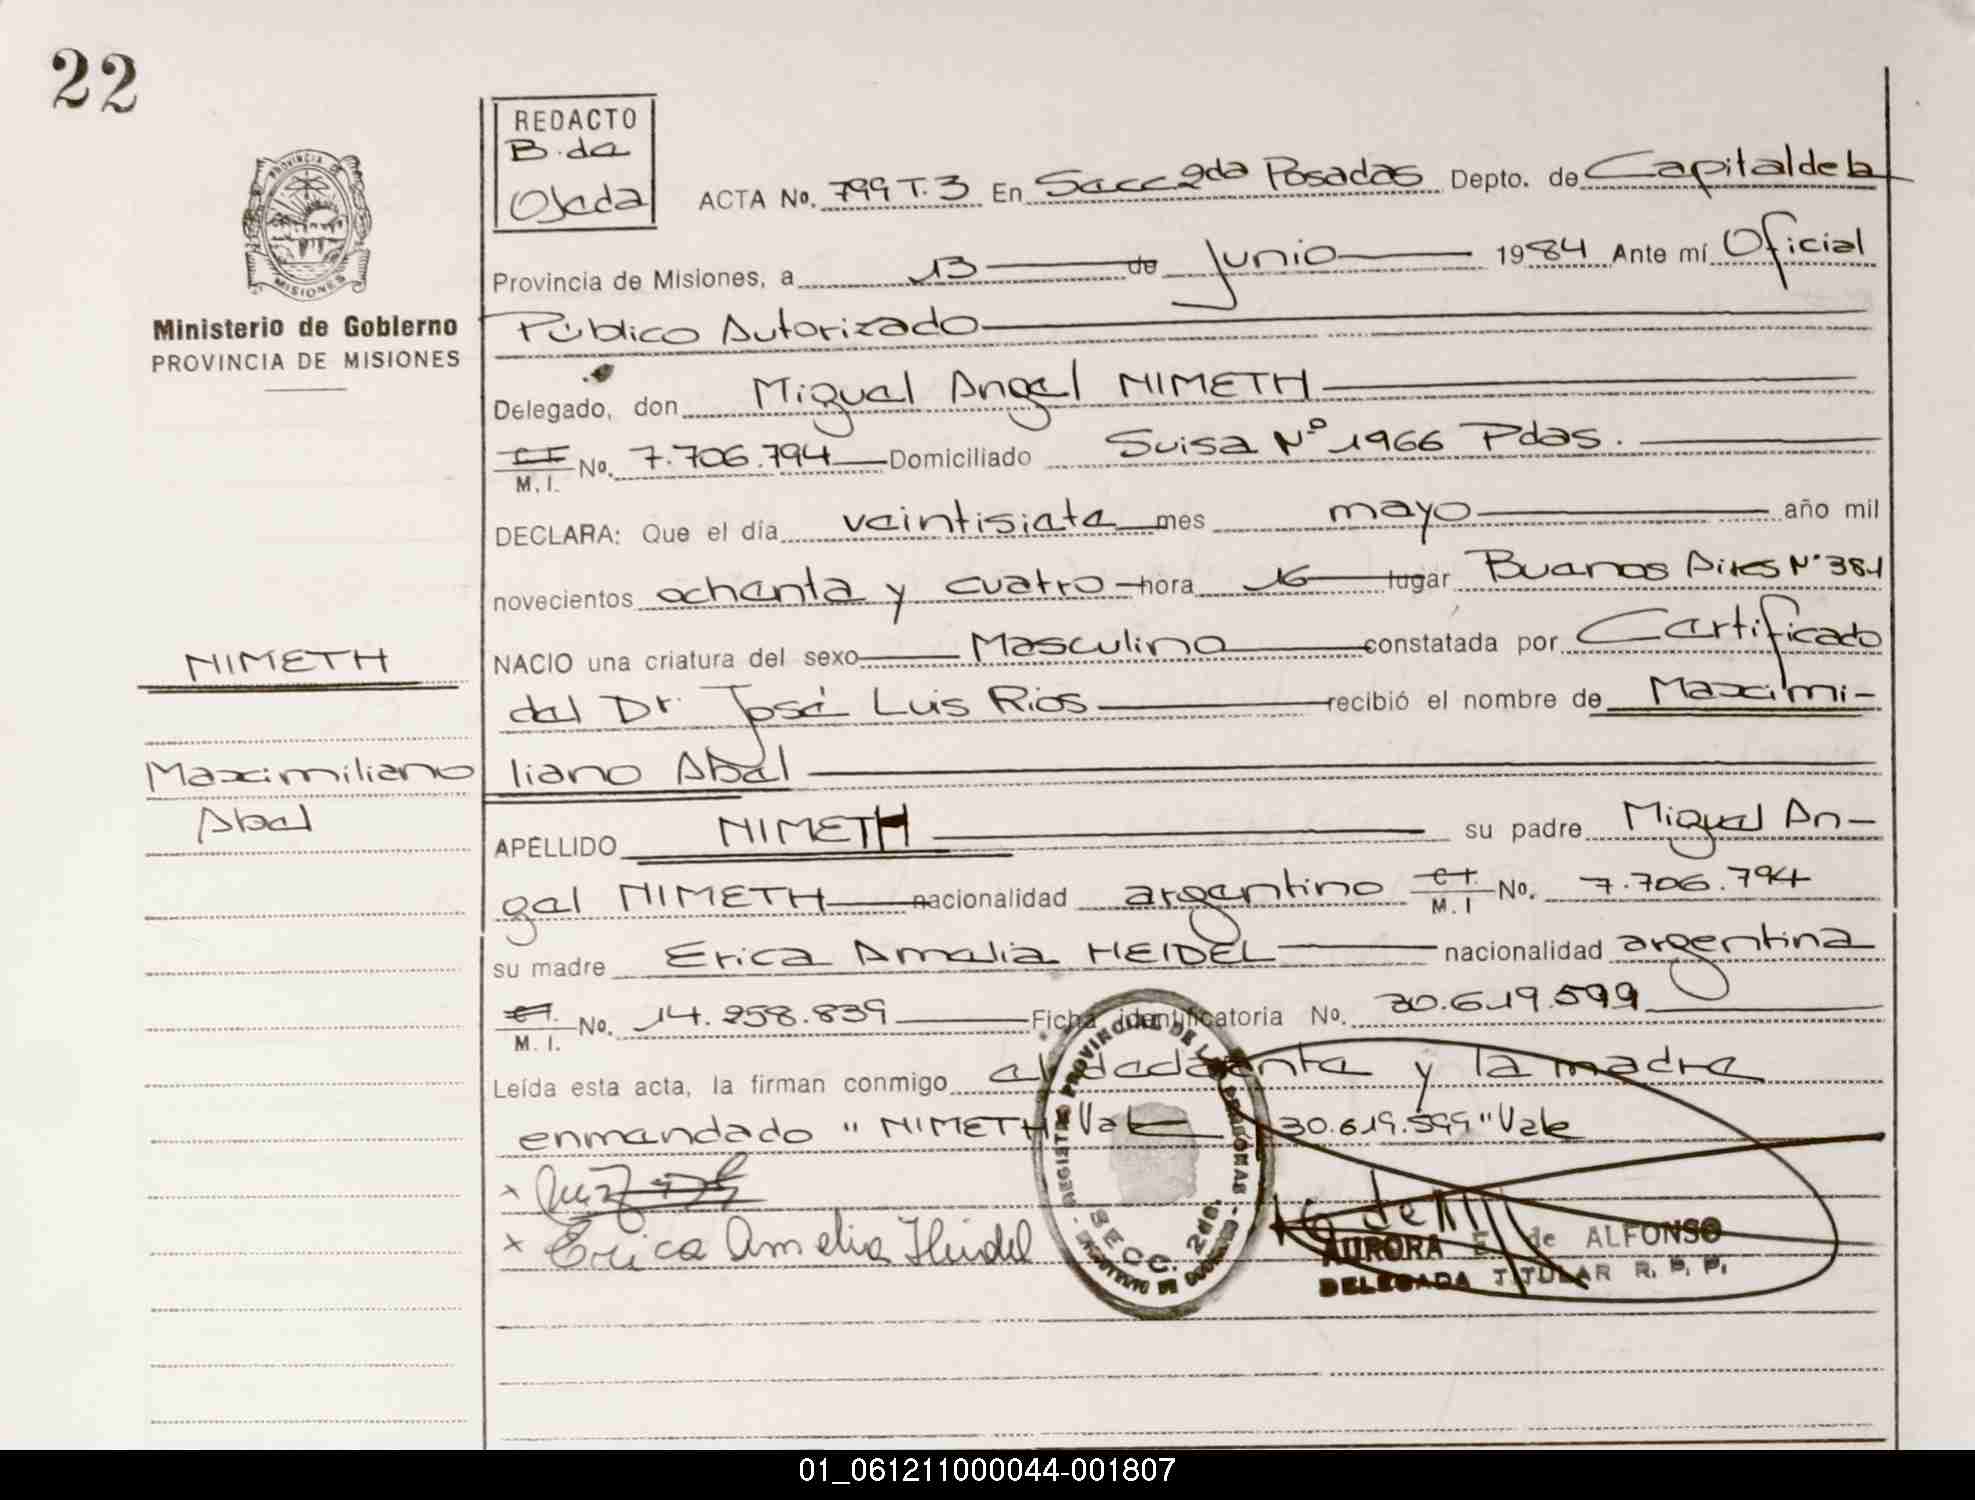 22
PROVINCIA DE
MISIONES
Ministerio de Gobierno
PROVINCIA DE MISIONES
NIMETH
Maximiliano
Abel
REDACTO
B. de
Ojeda
ACTA No. 799 T. 3 En Secc 2da Posadas Depto. de Capital de la
Provincia de Misiones, a 13 de Junio 1984 Ante mí Oficial
Público Autorizado
Delegado, don Miguel Angel NIMETH
C. I. M. I. No. 7.706.794 Domiciliado Suisa Nº 1966 Pdas.
DECLARA: Que el día veintisiete mes mayo año mil
novecientos ochenta y cuatro hora 16 lugar Buenos Aires Nº 381
NACIO una criatura del sexo Masculino constatada por Certificado
del Dr. José Luis Rios recibió el nombre de Maximi-
liano Abel
APELLIDO NIMETH su padre Miguel An-
gel NIMETH nacionalidad argentino C. I. M. I No. 7.706.794
su madre Erica Amelia HEIDEL nacionalidad argentina
C. I. M. I. No. 14.258.839 Ficha identificatoria No. 30.619.599
Leída esta acta, la firman conmigo el declarante y la madre
enmendado "NIMETH Vale 30.619.599" Vale
x
x Erica Amelia Heidel
REGISTRO PROVINCIAL DE LAS PERSONAS
SECC. 2da.
AURORA E. de ALFONSO
DELEGADA TITULAR R. P. P.
01_061211000044-001807